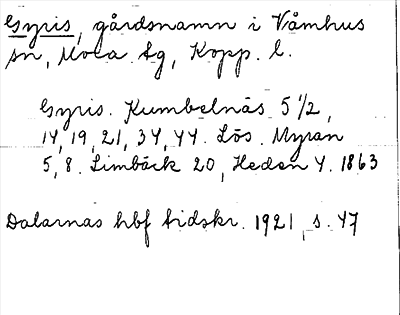 Gyris, gårdsnamn i Våmhus
sn, Mora tg, Kopp. l.
Gyris. Kumbelnäs 5 1/2,
14, 19, 21, 34, 44. Lös. Myran
5, 8. Limbäck 20, Heden 4. 1863
Dalarnas hbf tidskr. 1921, s. 47